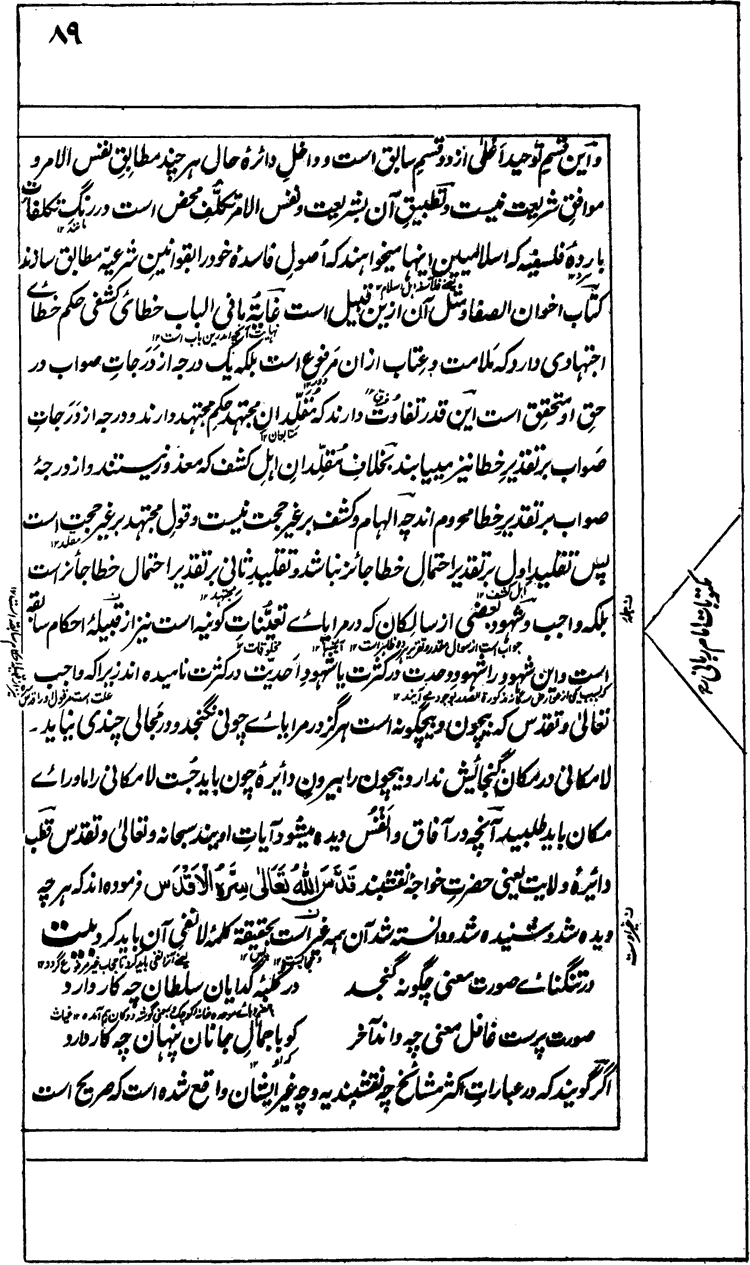 ۸۹
و این قسم توحید اعلیٰ از دو قسم سابق است و داخل دائرهٔ حال هر چند مطابق نفس الامر و
موافق شریعت نیست و تطبیق آن بشریعت و نفس الامر تکلف محض است در رنگ تکلفات
باردهٔ فلسفیه که اسلامیین اینها میخواهند که اصول فاسدهٔ خود را بقوانین شرعیه مطابق سازند
کتاب اخوان الصفا و مثل آن ازین قبیل است غایة ما فی الباب خطائ کشفی حکم خطاے
نهایت آنچه درین باب است ۱۲
اجتهادی دارد که ملامت و عتاب ازان مرفوع است بلکه یک درجه از درجات صواب در
حق او متحقق است این قدر تفاوت دارند که مقلدان مجتهد حکم مجتهد دارند و درجه از درجات
صواب بر تقدیر خطا نیز مییابند بخلاف مقلدان اهل کشف که معذور نیستند و از درجهٔ
صواب بر تقدیر خطا محروم اند چه الهام و کشف بر غیر حجت نیست و قول مجتهد بر غیر حجت است
پس تقلید اول بر تقدیر احتمال خطا جائز نباشد و تقلید ثانی بر تقدیر احتمال خطا جائز است
اهل کشف ۱۲
مجتهد ۱۲
بلکه واجب و شهود بعضی از سالکان که در مرایاے تعینات کونیه است نیز از قبیلهٔ احکام سابقه
است و این شهود را شهود وحدت در کثرت یا شهود احدیت در کثرت نامیده اند زیرا که واجب
تعالیٰ و تقدس که بیچون و بیچگونه است هرگز در مرایاے چونی نگنجد و در مجالی چندی نیاید ۔
لامکانی در مکان گنجائیش ندارد بیچون را بیرون دائرهٔ چون باید جست لامکانی را ماوراے
مکان باید طلبید آنچه در آفاق و انفس دیده میشود آیات اویند سبحانه و تعالیٰ و تقدس قطب
دائرهٔ ولایت یعنی حضرت خواجه نقشبند قدس الله تعالیٰ سره الاقدس فرموده اند که هر چه
دیده شد و شنیده شد و دانسته شد آن همه غیر است بحقیقة کلمهٔ لا نفی آن باید کرد بیت
در تنگناے صورت معنی چگونه گنجد در کلبهٔ گدایان سلطان چه کار دارد
صورت پرست غافل معنی چه داند آخر کو با جمال جانان پنهان چه کار دارد
که او ۱۲
اگر گویند که در عبارات اکثر مشائخ چه نقشبندیه و چه غیر ایشان واقع شده است که صریح است
مکتوبات امام ربانی